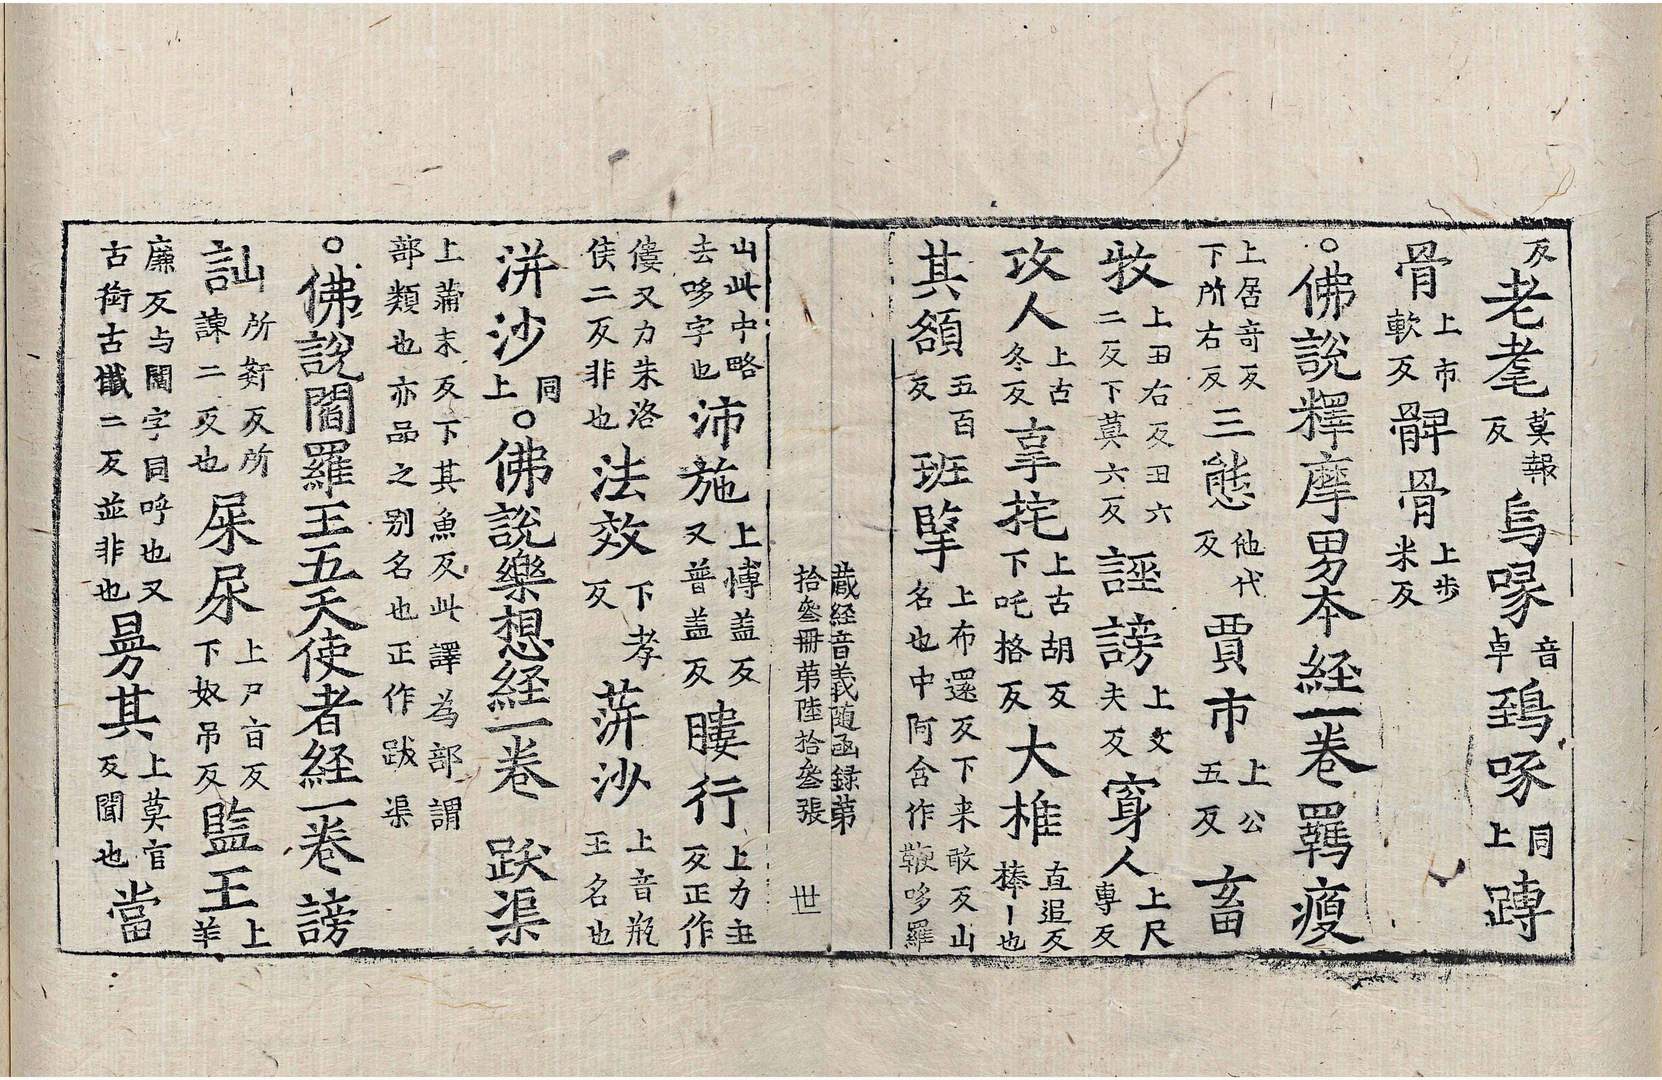 反老耄莫報反烏喙音卓鵄啄同上蹲
骨上市軟反髀骨上步米反
○佛說釋摩男本経一卷羈瘦
上居竒反下所右反三態他代反賈市上公五反畜
牧上丑右反丑六二反下莫六反誣謗上文夫反穿人上尺專反
攻人上古冬反辜挓上古胡反下吒格反大椎直追反棒〡也
其頟五百反班掔上布還反下来敢反山名也中阿含作鞭哆羅
藏経音義随函録苐
拾叄冊苐陸拾叄張 世
山此中略去哆字也沛施上愽盖反又普盖反瞜行上力主反正作
僂又力朱洛侯二反非也法效下孝反蓱沙上音瓶王名也
洴沙同上○佛說樂想経一卷 跋渠
上蒲末反下其魚反此譯為部謂部類也亦品之别名也正作跋渠
○佛說閻羅王五天使者経一卷謗
訕所諫反所諫二反也屎尿上尸旨反下奴吊反監王上羊
廉反与閻字同呼也又古銜古懺二反並非也曼其上莫官反聞也當